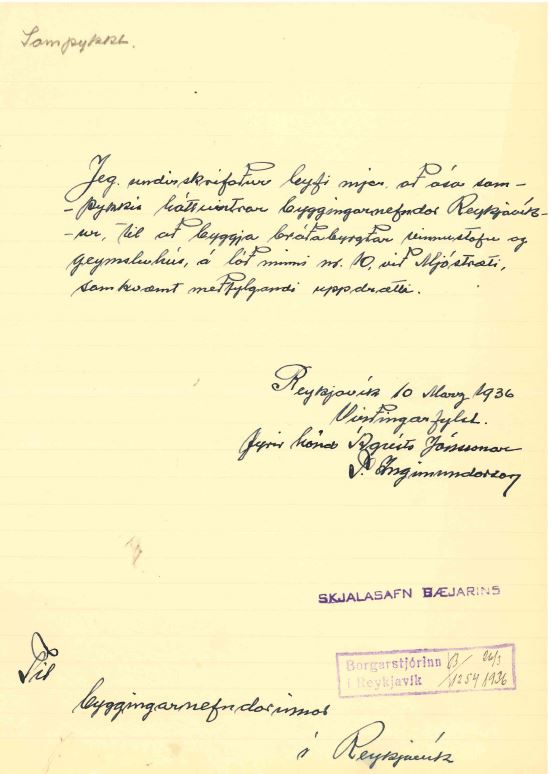 Samþykkt.
Jeg. undirskrifaður leyfi mjer að ósa sam-
-þykkis háttvirtrar byggingarnefndar Reykjavík-
-ur, til að byggja bráðabyrgðar vinnustofu og
geymsluhús, á lóð minni nr. 10, við Mjóstræti,
samkvæmt meðfylgandi uppdrætti.
Reykjavík 10 Marz 1936
Virðingarfylst.
fyrir hönd Ágústs Jónssonar
P. Ingimundarson
SKJALASAFN BÆJARINS
Borgarstjórinn B/ 26/3
í Reykjavík /1254 1936
Til
byggingarnefndarinnar
í Reykjavík